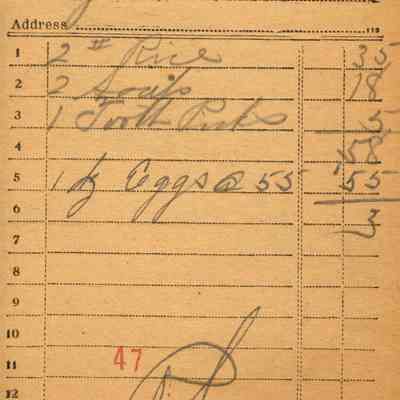 Address
1 2 # Rice 35
2 2 Soups 18
3 1 Tooth Picks 5
4 58
5 1 Dz Eggs @ 55 55
6 3
7
8
9
10
11 47
12